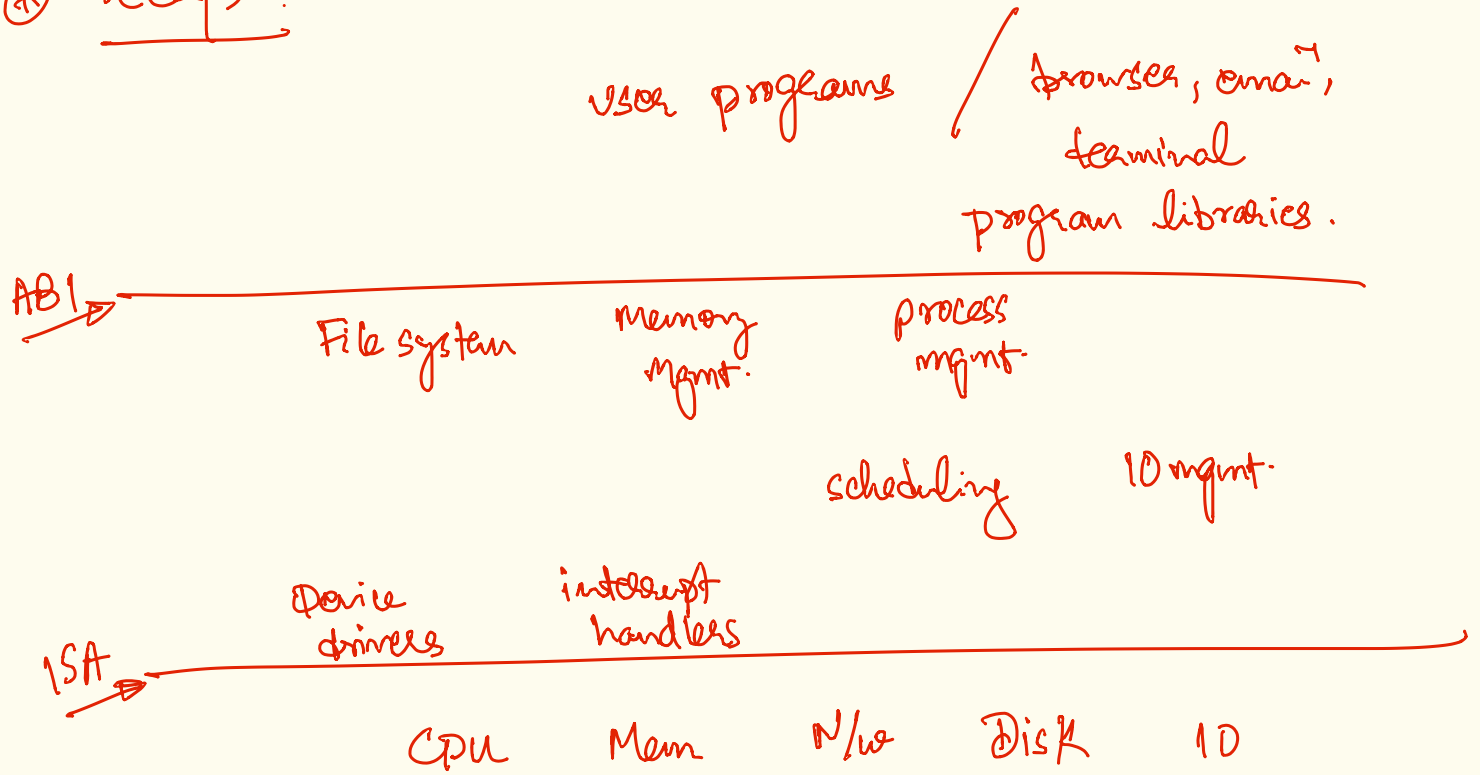 user programs / browser, email,
terminal
program libraries.
ABI
File system
Memory
Mgmt.
process
mgmt.
scheduling
IO mgmt.
Device
drivers
interrupt
handlers
ISA
CPU Mem N/w Disk IO